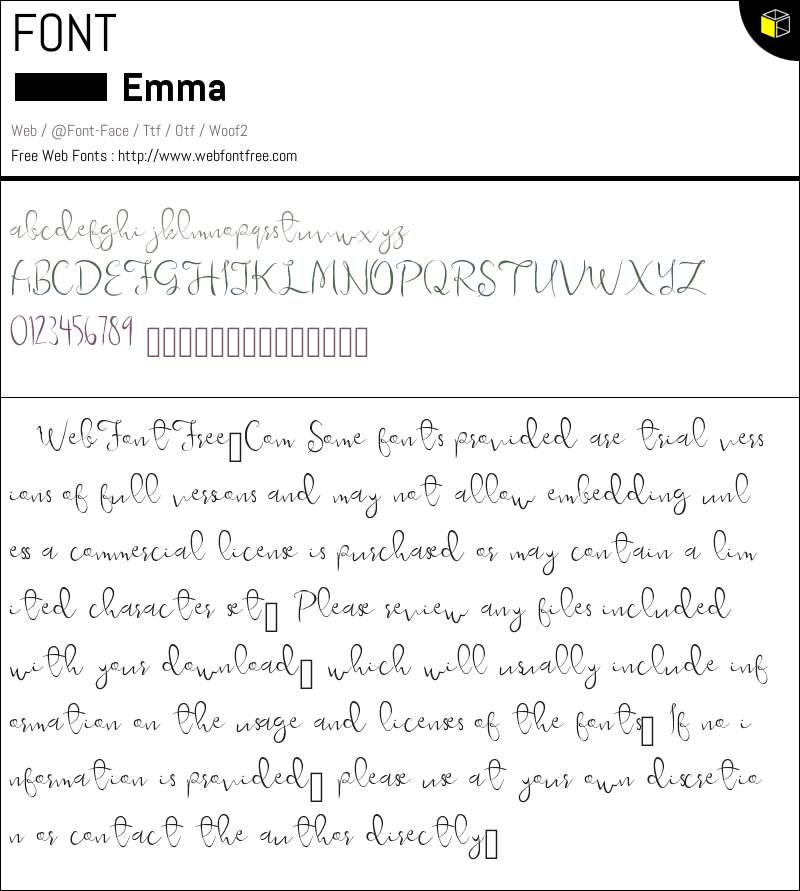 FONT
Emma
Web / @Font-Face / Ttf / Otf / Woof2
Free Web Fonts : http://www.webfontfree.com
abcdefghijklmnopqrstuvwxyz
ABCDEFGHIJKLMNOPQRSTUVWXYZ
0123456789 □□□□□□□□□□□□□□
WebFontFree□Com Some fonts provided are trial vers
ions of full versons and may not allow embedding unl
ess a commercial license is purchased or may contain a lim
ited character set□ Please review any files included
with your download□ which will usually include inf
ormation on the usage and licenses of the fonts□ If no i
nformation is provided□ please use at your own discretio
n or contact the author directly□